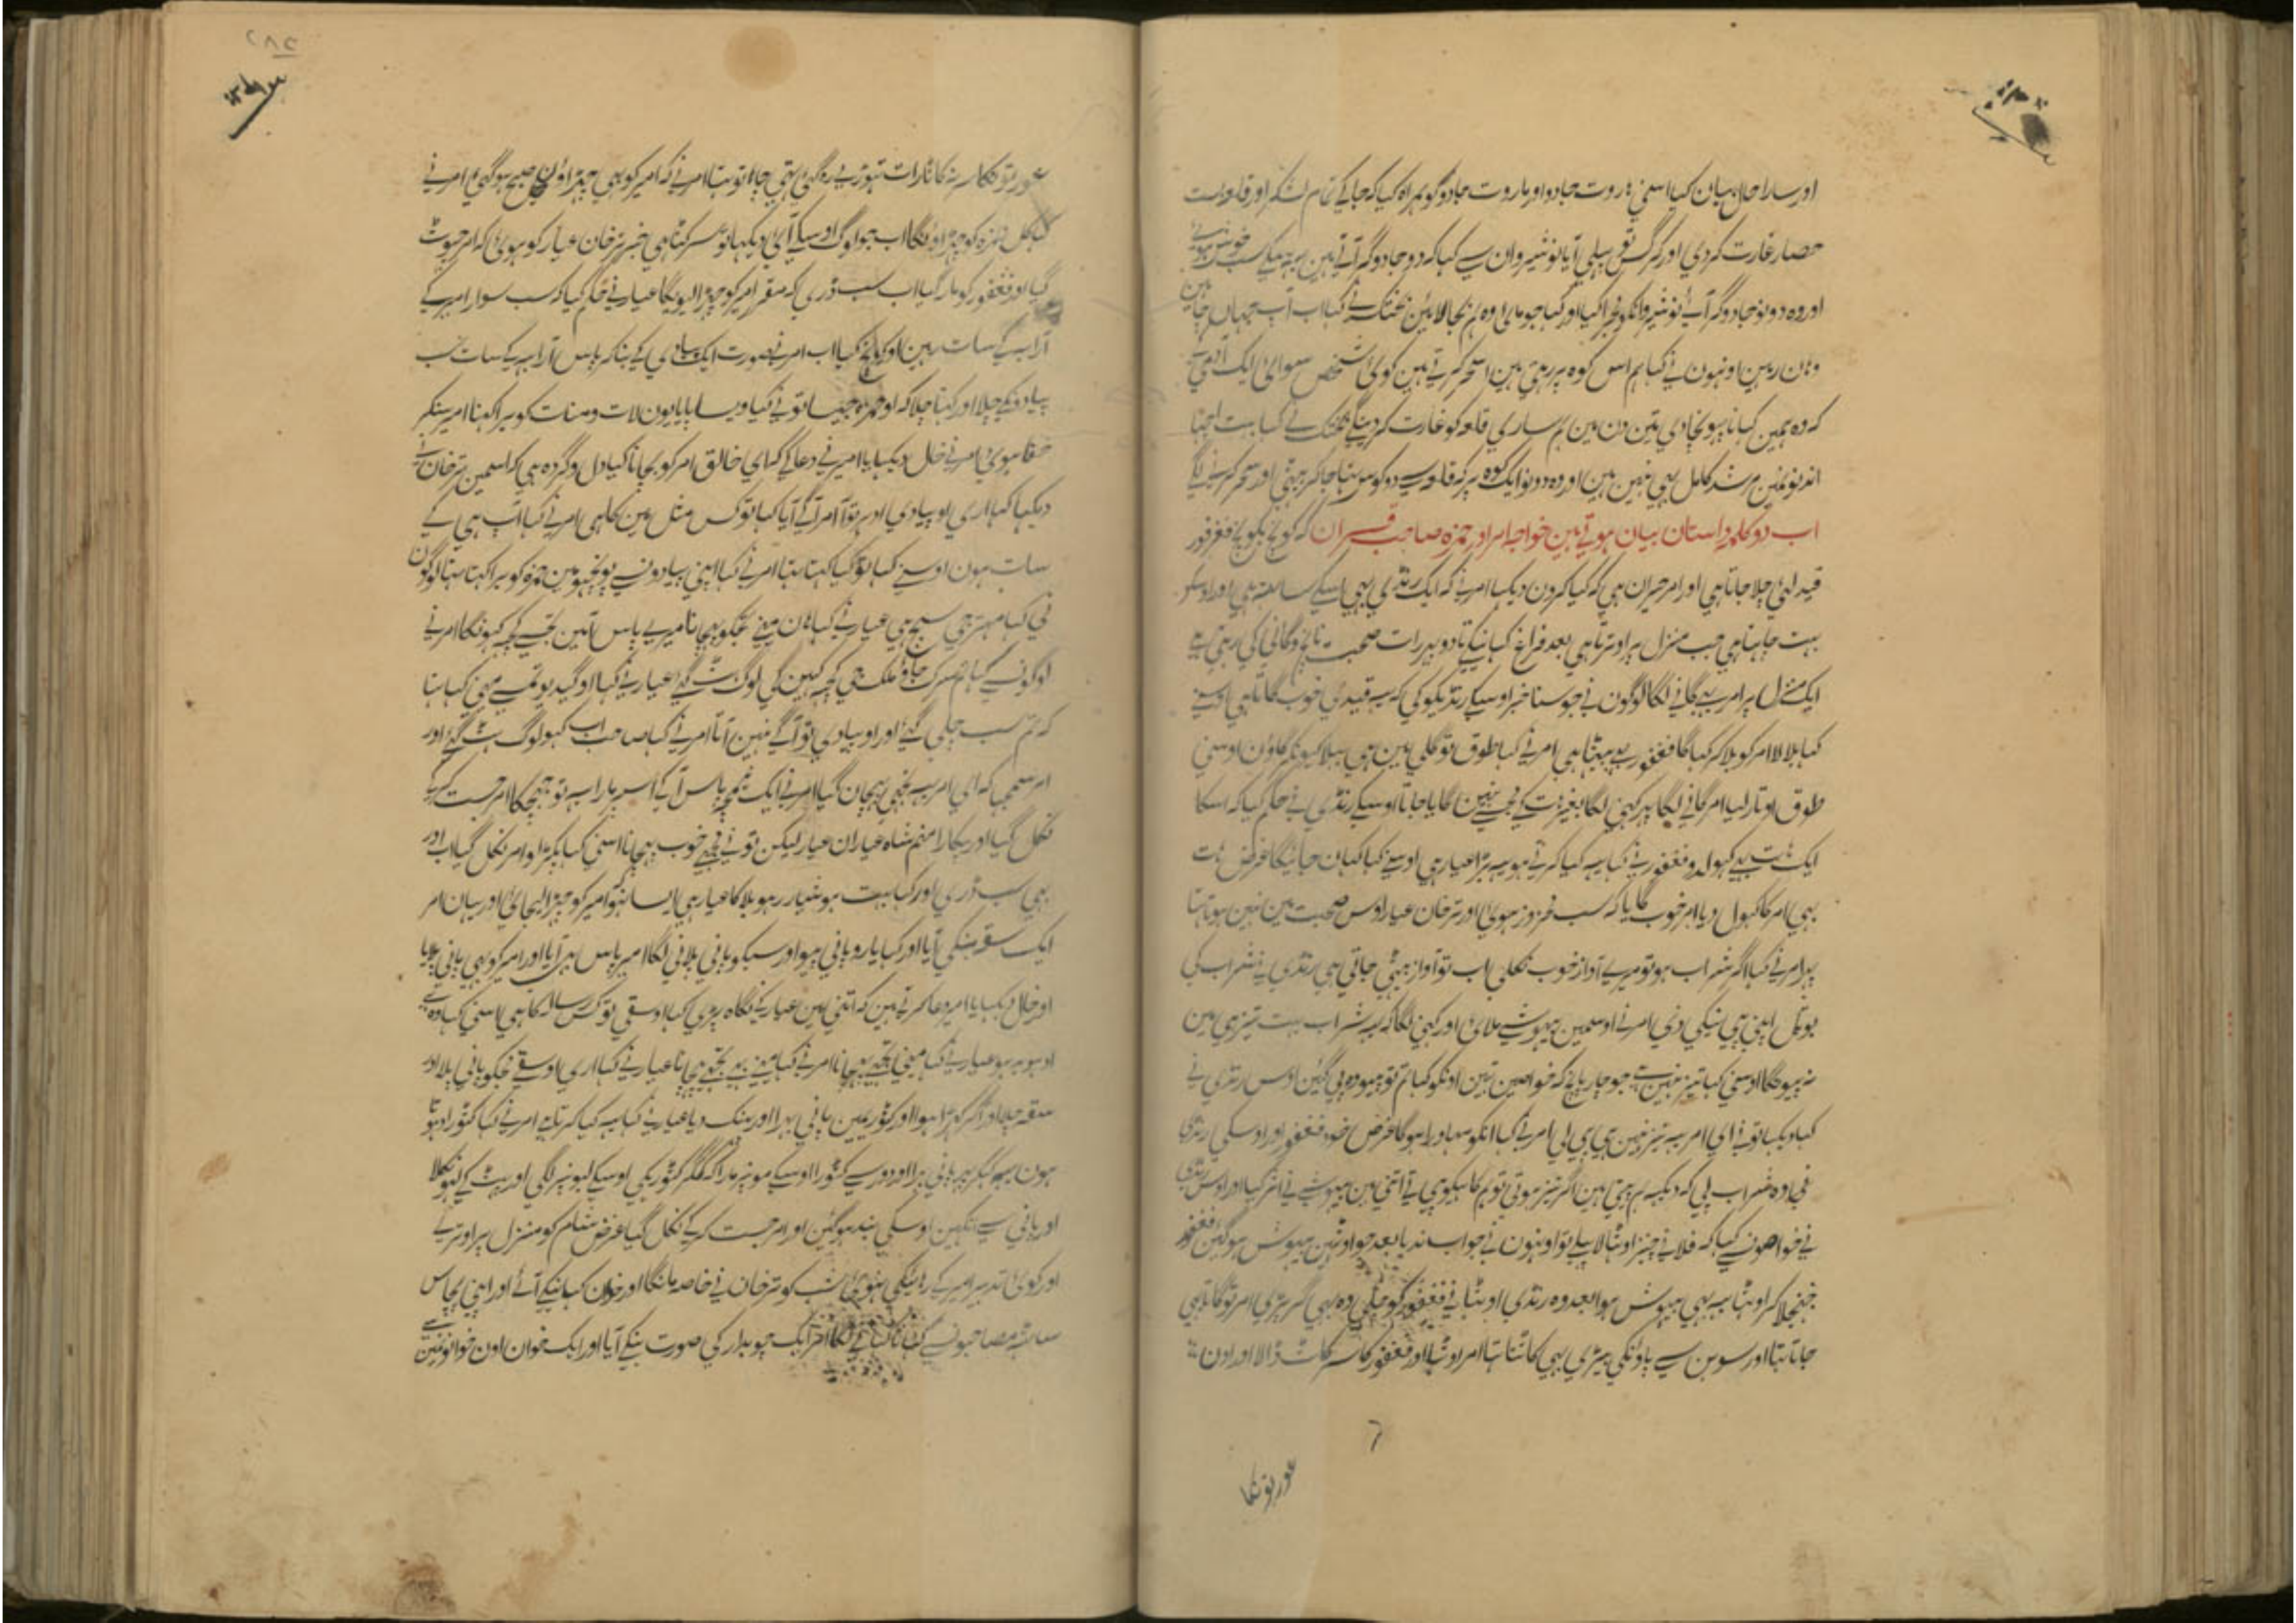 اور سارا حال بیان کیا اسنی ہاروت جادو اور ماروت جادو کو ہمراہ کیا کہ جا کی تمام لشکر اور قلعہ ست
حصار غارت کر دی اور کرگ پہلی آیا نوشیروان سی کہا کہ دو جادوگر آتی ہین سب خوش ہوئی
اور وہ دونو جادوگر آئی نوشیروان کو مجرا کیا اور کہا جو فرمائی وہ ہم بجا لائین بختک نی کہا اب آپ جہان چاہین
وہان رہین اونہون نی کہا ہم اس کوہ پر رہتی ہین سحر کرتی ہین کوئی شخص سوای ایک آدمی
کہ وہ ہمین کہانا پہونچا دی تین دن مین ہم ساری قلعہ کو غارت کر دینگی بختک نی کہا بہت اچہا
ان دونون مین مرشد کامل بہی نہین ہین اور وہ دونو ایک کوہ پر کہ قلعہ سی دو کوس تہا جا کر بیٹہی اور سحر کرنی لگی
اب دو کلمہ داستان بیان ہوتی ہین خواجہ امر اور حمزہ صاحب قران کہ کوچ بکوچ فغفور
قید لئی چلا جاتا ہی اور امر حیران ہی کہ کیا کرون دیکہا امر نی کہ ایک رنڈی بہی اسکی ساتہ ہی اور اوسکو
بہت چاہتا ہی جب منزل پر اوترتا ہی بعد فراغ کہانیکی تا دوپہر رات صحبت ناچ و گانی کی رہتی ہی
ایک منزل پر امر بہی گانی لگا لوگون نی جو سنا خبر اوسکی رنڈیکو کی کہ یہ قیدی خوب گاتا ہی اوسنی
کہا بلا لا امر کو بلا کر کہا گا فغفور بہی بیٹہا ہی امر نی کہا طوق تو گلی مین ہی بہلا کیونکر گاؤن اوسنی
طوق اوتار لیا امر گانی لگا پہر کہنی لگا بغیر ہات کی مجسی نہین گایا جاتا اوسکی رنڈی نی حکم کیا کہ اسکا
ایک ہات بہی کہولدو فغفور نی کہا یہ کیا کرتی ہو یہ بڑا عیار ہی اوسنی کہا کہان جائیگا غرض ہات
بہی امر کا کہول دیا امر خوب گایا کہ سب فرروز ہوئی اور ترخان عیار اوس صحبت مین نہین ہوتا تہا
پہر امر نی کہا اگر شراب ہو تو میری آواز خوب نکلی اب تو آواز بیٹہی جاتی ہی رنڈی نی شراب کی
بوتل اپنی پینیکی دی امر نی اوسمین بیہوشی ملائی اور کہنی لگا کہ یہ شراب بہت تیز ہی مین
نہ پیونگا اوسنی کہا تیز نہین ہی جو چار پانچ کہ خواصین تہین اونکو کہا تم تو پیو وہ پی گئین اوس رنڈی نی
کہا دیکہا توئی ای امر یہ تیز نہین ہی پی لی امر نی کہا انکو سہاورا ہوگا غرض خود فغفور اور اوسکی رنڈی
نی وہ شراب پی کہ دیکہ ہم پیتی ہین اگر تیز ہوتی تو ہم کاہیکو پیتی اتنی مین بیہوشی نی اثر کیا اور اوس رنڈی
نی خواصونسی کہا کہ فلانی چیز اوٹہا لا پہلی تو اونہون نی جواب ندیا بعد جو اوٹہین بیہوش ہوگئین فغفور
جہنجلا کر اوٹہا یہ بہی بیہوش ہوا بعد وہ رنڈی اوٹہانی فغفور کو چلی وہ بہی گر پڑی امر تو گاتا بہی
جاتا تہا اور سوہن سی پاؤنکی بیڑی بہی کاٹتا تہا امر اوٹہا اور فغفور کا سر کاٹ ڈالا اور اون
عورتونکا
عورتونکا سر نہ کاٹا رات تہوڑی رہ گئی تہی چاہا تو تہا امر نی کہ امیر کو بہی چہڑاون صبح ہوگئی امر نی
کہا کل حمزہ کو چہڑاونگا اب جو لوگ اوسکی آئی دیکہا تو سر کٹا ہی خبر ترخان عیار کو ہوئی کہ امر چہوٹ
گیا اور فغفور کو مار گیا اب سب ڈری کہ مقرر امیر کو چہڑا لیویگا عیار نی حکم کیا کہ سب سوار امیر کی
ارابہ کی سات رہین اور کوچ کیا اب امر نی صورت ایک پیادی کی بنا کر پاس ارابہ کی سات سب
پیادونکی چلا اور کہتا چلا کہ او حمزہ جیسا توئی کیا ویسا پایا یون لات و منات کو برا کہنا امیر سنکر
خفا ہوئی امر نی خال دیکہایا امیر نی دعا کی کہ ای خالق امر کو بچانا کیا دل و گردہ ہی کہ اسمین ترخان نی
دیکہا کہا اری او پیادی ادہر تو آ امر آگی آیا کہا تو کس مثل مین کا ہی امر نی کہا آپ ہی کی
سات ہون اوسنی کہا تو کیا کہتا تہا امر نی کہا اپنی پیادونسی پوچہو مین حمزہ کو برا کہتا تہا لوگون
نی کہا مہتر جی سچ ہی عیار نی کہا ہان مینی تمکو پہچانا میری پاس آ مین تجسی کچہ کہونگا امر نی
لوگونسی کہا تم سرک جاؤ ملک جی کچہ کہین گی لوگ ہٹ گئی عیار نی کہا او گیدیو تمسی مینی کہا تہا
کہ تم سب چلی گئی اور او پیادی تو آگی نہین آتا امر نی کہا صاحب اب کہو لوگ ہٹ گئی اور
امر سمجہا کہ ای امر یہ تجہی پہچان گیا امر نی ایک خنجر پاس آ کی اسپر مارا یہ تو جہجکا امر جست کر کی
نکل گیا اور پکارا منم شاہ عیاران عیار لیکن توئی مجہی خوب پہچانا اسنی کہا پکڑو امر نکل گیا اب اور
بہی سب ڈری اور کہا بہت ہوشیار رہو بلا کا عیار ہی ایسا نہو امیر کو چہڑا لیجائی اور یہان امر
ایک سقہ بنکی آیا اور کہا یارو پانی پیو اور سبکو پانی پلانی لگا امیر پاس بہی آیا اور امیر کو بہی پانی پلایا
اور خال دیکہایا امیر دعا کرتی ہین کہ اتنی مین عیار کی نگاہ پڑی کہا او سقی تو کس رسالہ کا ہی اسنی کہا وہ
او ہو ہو ہو عیار نی کہا مینی تجہی پہچانا امر نی کہا مینی بہی تجہی پہچانا عیار نی کہا اری او سقی مجکو پانی پلا اور
سقہ چلا اور آکر کہڑا ہوا اور کٹوریمین پانی بہرا اور پہینک دیا عیار نی کہا یہ کیا کرتا ہی امر نی کہا کٹورا دہوتا
ہون یہ کہکر پہر پانی بہرا اور دور سی کٹورا اوسکی مونہ پر مارا کہ لگر کٹوریکی اوسکی لبونپر لگی اور پہٹ کی لہو نکلا
اور پانی سی آنکہین اوسکی بند ہوگئین اور امر جست کر کی نکل گیا غرض شام کو منزل پر اوتری
اور کوئی تدبیر امیر کی رہائیکی نہوئی شب کو ترخان نی خاصہ مانگا اور خوان کہانیکی آئی اور اپنی پچاس
ساٹہ مصاحبونسی کہانا کہانی لگا امر ایک چوبدار کی صورت بنکی آیا اور ایک خوان اون خوانونمین سی